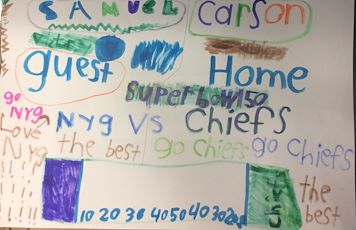 SAMUEL Carson
guest Home
Super bowl 50
go NYG
NYg VS Chiefs
Love NYg the best go Chiefs go Chiefs
!!!!
!!!!
10 20 30 40 50 40 30 20
Chiefs
the best